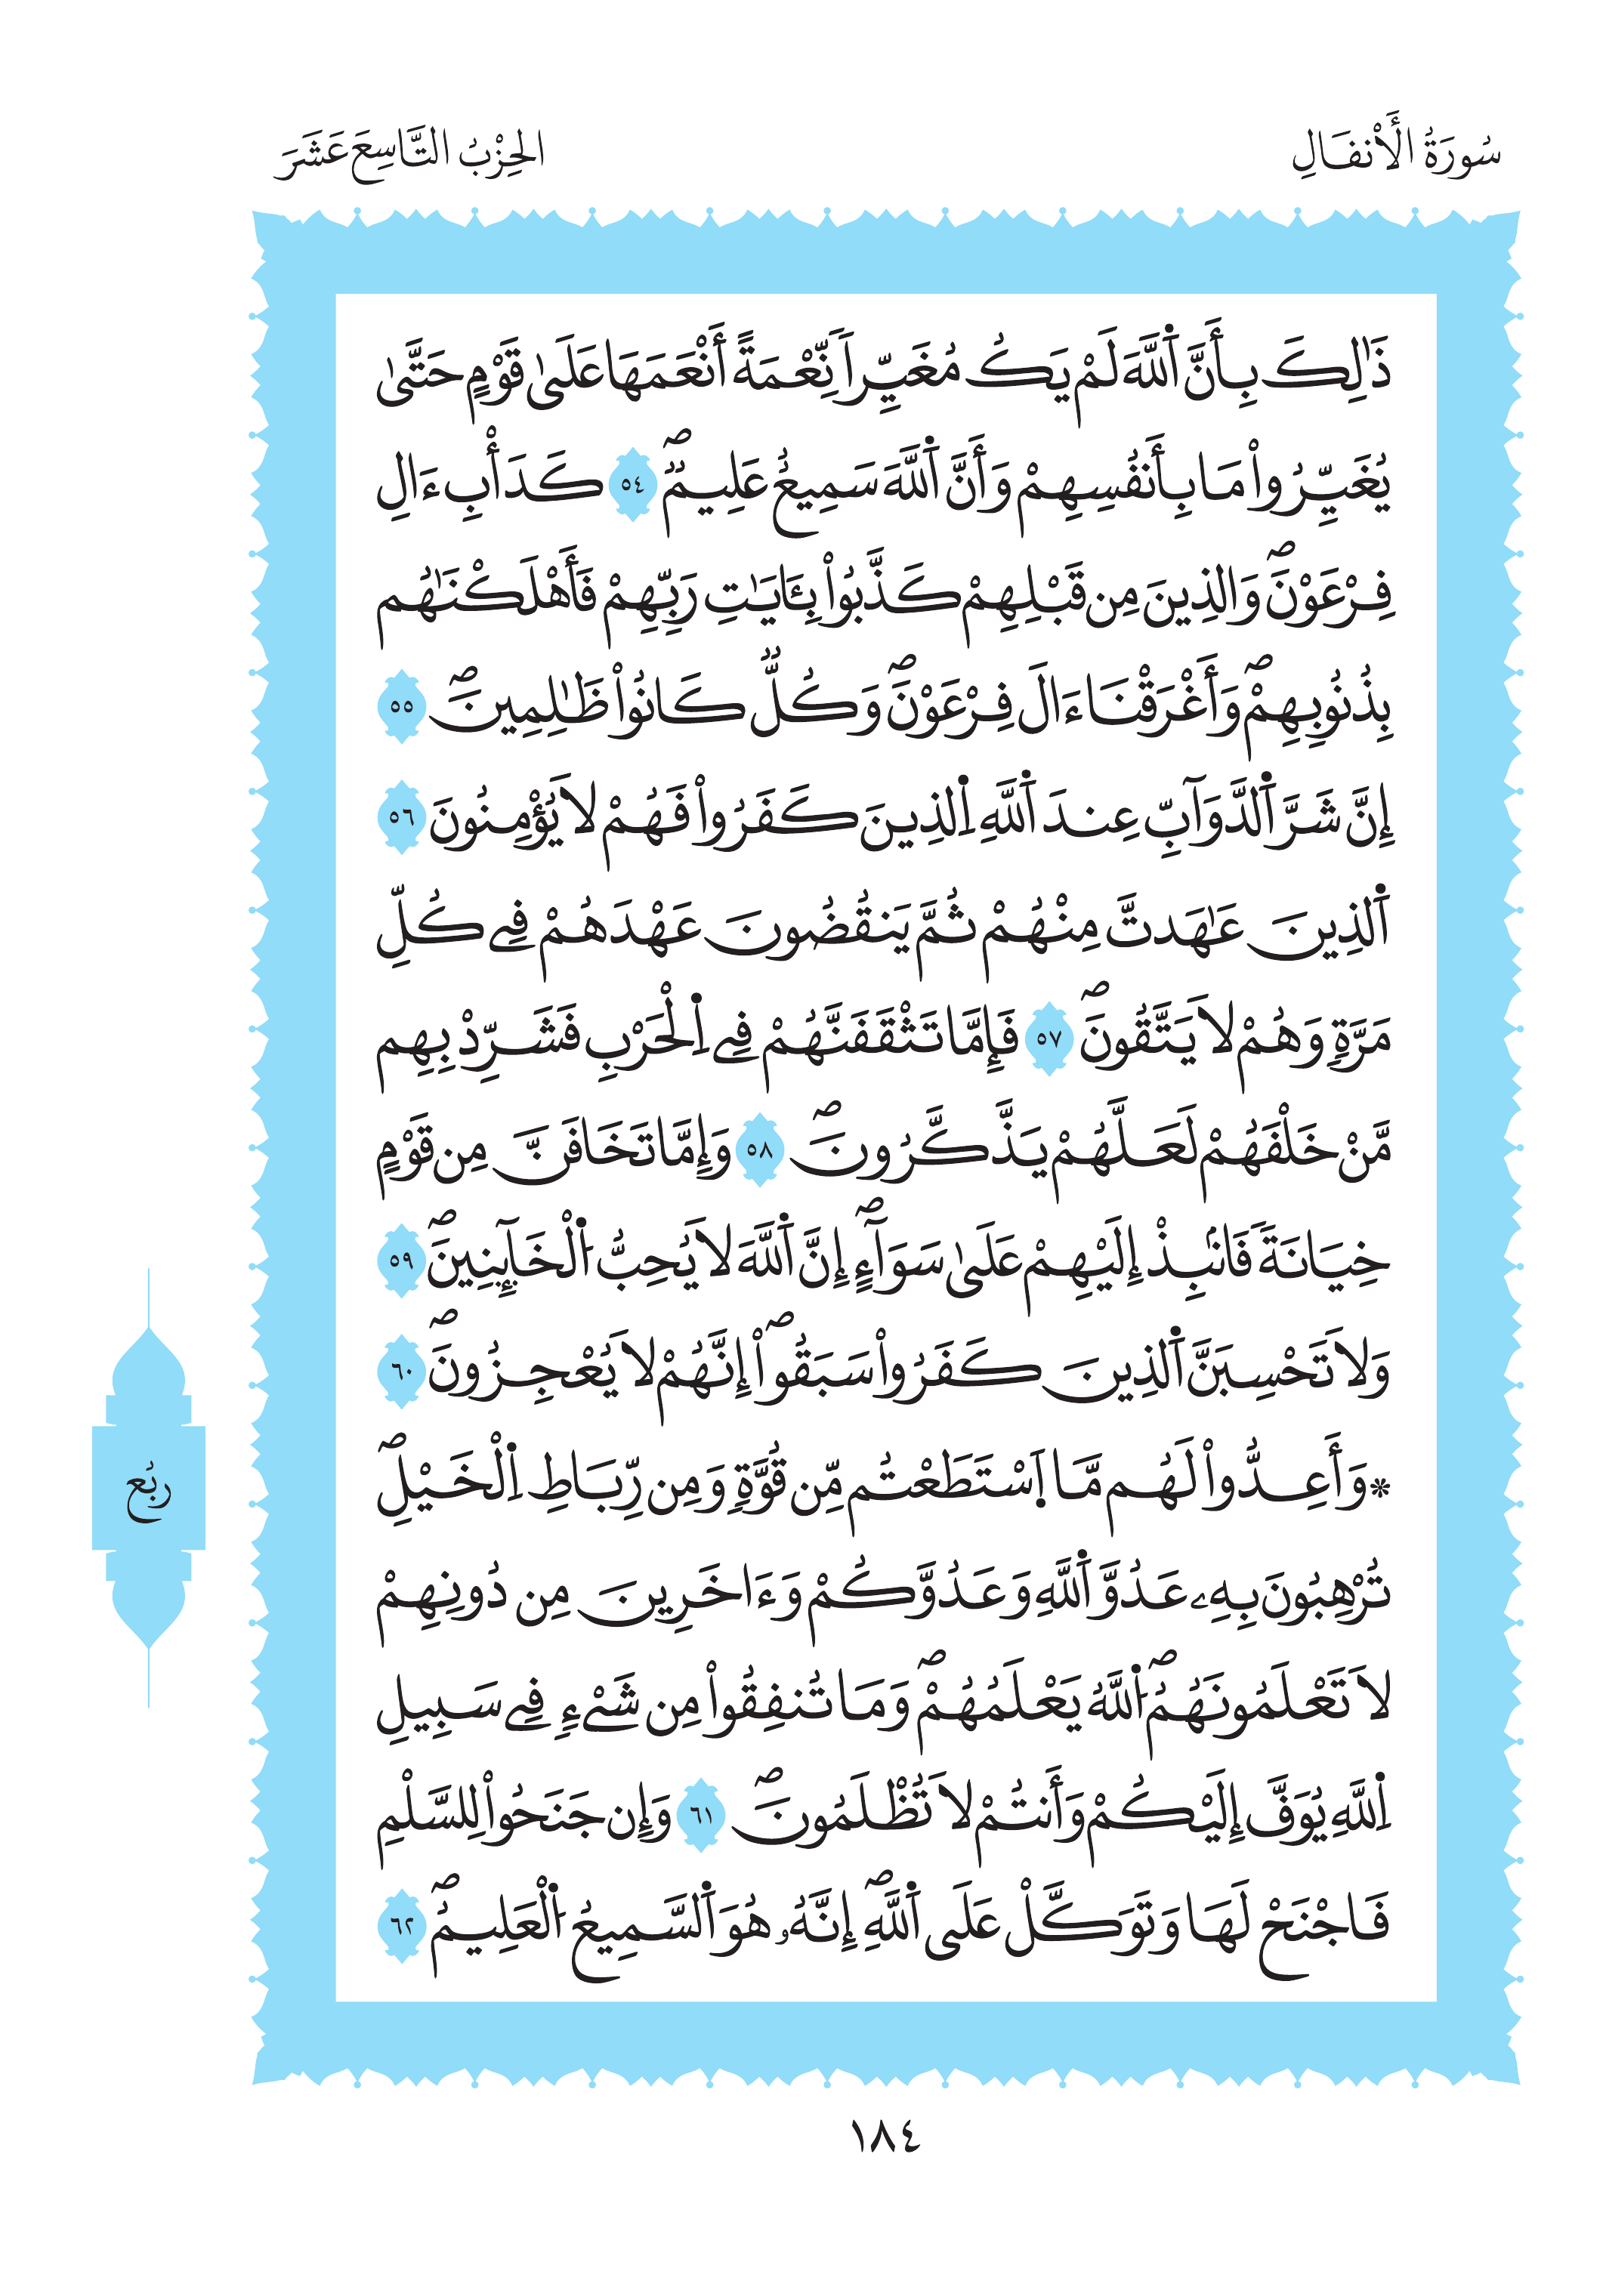 سُورَةُ الْأَنفَالِ
الحِزْبُ التَّاسِعَ عَشَرَ
ذَٰلِكَ بِأَنَّ اَ۬للَّهَ لَمْ يَكُ مُغَيِّراٗ نِّعْمَةً أَنْعَمَهَا عَلَىٰ قَوْمٍ حَتَّىٰ
يُغَيِّرُواْ مَا بِأَنفُسِهِمْ وَأَنَّ اَ۬للَّهَ سَمِيعٌ عَلِيمٞۖ ٥٤ كَدَأْبِ ءَالِ
فِرْعَوْنَۖ وَالذِينَ مِن قَبْلِهِمْ كَذَّبُواْ بِـَٔايَٰتِ رَبِّهِمْ فَأَهْلَكْنَٰهُم
بِذُنُوبِهِمْۖ وَأَغْرَقْنَا ءَالَ فِرْعَوْنَۖ وَكُلّٞ كَانُواْ ظَٰلِمِينَۖ ٥٥
إِنَّ شَرَّ اَ۬لدَّوَآبِّ عِندَ اَ۬للَّهِ اِ۬لذِينَ كَفَرُواْ فَهُمْ لَا يُؤْمِنُونَ ٥٦
اَ۬لذِينَ عَٰهَدتَّ مِنْهُمْ ثُمَّ يَنقُضُونَ عَهْدَهُمْ فِے كُلِّ
مَرَّةٖ وَهُمْ لَا يَتَّقُونَۖ ٥٧ فَإِمَّا تَثْقَفَنَّهُمْ فِے اِ۬لْحَرْبِ فَشَرِّدْ بِهِم
مَّنْ خَلْفَهُمْ لَعَلَّهُمْ يَذَّكَّرُونَۖ ٥٨ وَإِمَّا تَخَافَنَّ مِن قَوْمٍ
خِيَانَةٗ فَانۢبِذْ إِلَيْهِمْ عَلَىٰ سَوَآءٍۖ إِنَّ اَ۬للَّهَ لَا يُحِبُّ اُ۬لْخَآئِنِينَۖ ٥٩
وَلَا تَحْسِبَنَّ اَ۬لذِينَ كَفَرُواْ سَبَقُوٓاْۖ إِنَّهُمْ لَا يُعْجِزُونَۖ ٦٠
* وَأَعِدُّواْ لَهُم مَّا اَ۪سْتَطَعْتُم مِّن قُوَّةٖ وَمِن رِّبَاطِ اِ۬لْخَيْلِۖ
تُرْهِبُونَ بِهِۦ عَدُوَّ اَ۬للَّهِ وَعَدُوَّكُمْ وَءَاخَرِينَ مِن دُونِهِمْ
لَا تَعْلَمُونَهُمُۖ اُ۬للَّهُ يَعْلَمُهُمْۖ وَمَا تُنفِقُواْ مِن شَےْءٖ فِے سَبِيلِ
اِ۬للَّهِ يُوَفَّ إِلَيْكُمْ وَأَنتُمْ لَا تُظْلَمُونَۖ ٦١ وَإِن جَنَحُواْ لِلسَّلْمِ
فَاجْنَحْ لَهَا وَتَوَكَّلْ عَلَى اَ۬للَّهِۖ إِنَّهُۥ هُوَ اَ۬لسَّمِيعُ اُ۬لْعَلِيمُۖ ٦٢
ربُع
١٨٤